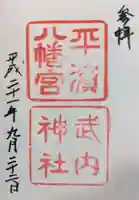 奉拝
平濱
八幡宮
武内
神社
平成二十一年九月二十二日